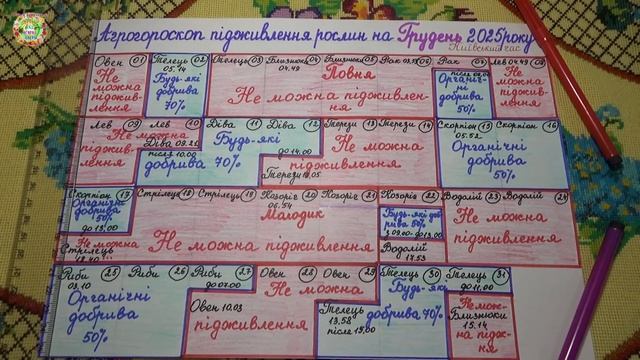 Агрогороскоп підживлення рослин на Грудень 2025 року
Київський час
Овен 01 Телець 02 Телець 03 Близнюки 04 Близнюки 05 Рак 06 Рак 07 Лев 04.49 08
05.14 04.49
Не можна підживлення
Будь-які добрива 70%
Повня
Не можна підживлення
Органічні добрива 50%
Не можна підживлення
Лев 09 Лев 10 Діва 11 Діва 12 Терези 13 Терези 14 Скорпіон 15 Скорпіон 16
Не можна підживлення
Діва 09.20
після 10.00
Будь-які добрива 70%
до 14.00
Терези 18.05
Не можна підживлення
05.52
Органічні добрива 50%
Скорпіон 17 Стрілець 18 Стрілець 19 Козоріг 20 Козоріг 21 Козоріг 22 Водолій 23 Водолій 24
Органічні добрива 50%
до 13.00
Не можна
Стрілець
Молодик
Не можна підживлення
Будь-які добрива 50%
Водолій 17.53
Не можна підживлення
Риби 25 Риби 26 Риби 27 Овен 28 Овен 29 Телець 30 Телець 31
Органічні добрива 50%
до 07.00
Овен 10.03
Не можна підживлення
Телець 13.58
після 15.00
Будь-які добрива 70%
до 11.00
Близнюки 15.14